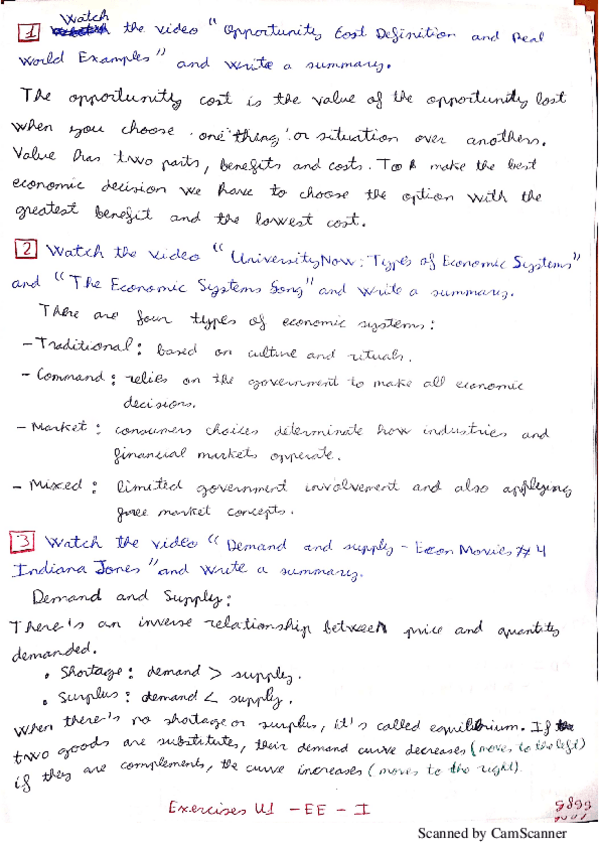 Watch
1 the video "Opportunity Cost Definition and Real
World Examples" and write a summary.
The opportunity cost is the value of the opportunity lost
when you choose one "thing" or situation over anothers.
Value has two parts, benefits and costs. To make the best
economic decision we have to choose the option with the
greatest benefit and the lowest cost.
2 Watch the video "University Now: Types of Economic Systems"
and "The Economic Systems Song" and write a summary.
There are four types of economic systems:
- Traditional: based on culture and rituals.
- Command: relies on the government to make all economic
decisions.
- Market: consumers choices determinate how industries and
financial markets opperate.
- Mixed: limited government involvement and also applying
free market concepts.
3 Watch the video "Demand and supply - Econ Movies #4
Indiana Jones" and write a summary.
Demand and Supply:
There's an inverse relationship between price and quantity
demanded.
• Shortage: demand > supply.
• Surplus: demand < supply.
When there's no shortage or surplus, it's called equilibrium. If
two goods are substitutes, their demand curve decreases (moves to the left)
if they are complements, the curve increases (moves to the right).
Exercises U1 - EE - I
Scanned by CamScanner